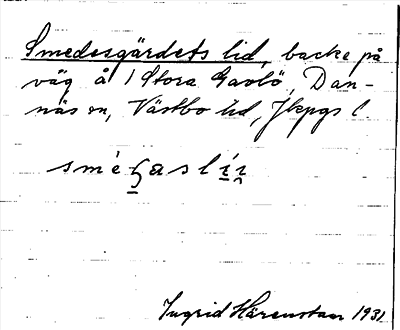 Smedesgärdets lid, backe på
väg å 1 Stora Gavlö, Dan-
näs sn, Västbo hd, Jkpgs l.
Ingrid Härenstam 1931